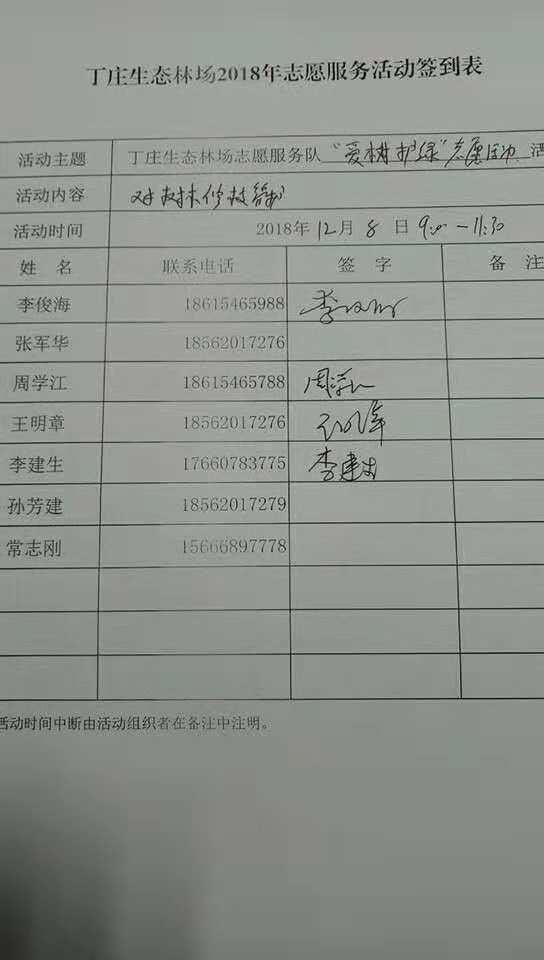 丁庄生态林场2018年志愿服务活动签到表
活动主题 丁庄生态林场志愿服务队 "爱树护绿"志愿活动 活
活动内容 对树木修枝
活动时间 2018年12月8日 9:00-11:30
姓 名 联系电话 签 字 备 注
李俊海 18615465988 李俊海
张军华 18562017276
周学江 18615465788 周学江
王明章 18562017276 王明章
李建生 17660783775 李建生
孙芳建 18562017279
常志刚 15666897778
活动时间中断由活动组织者在备注中注明。